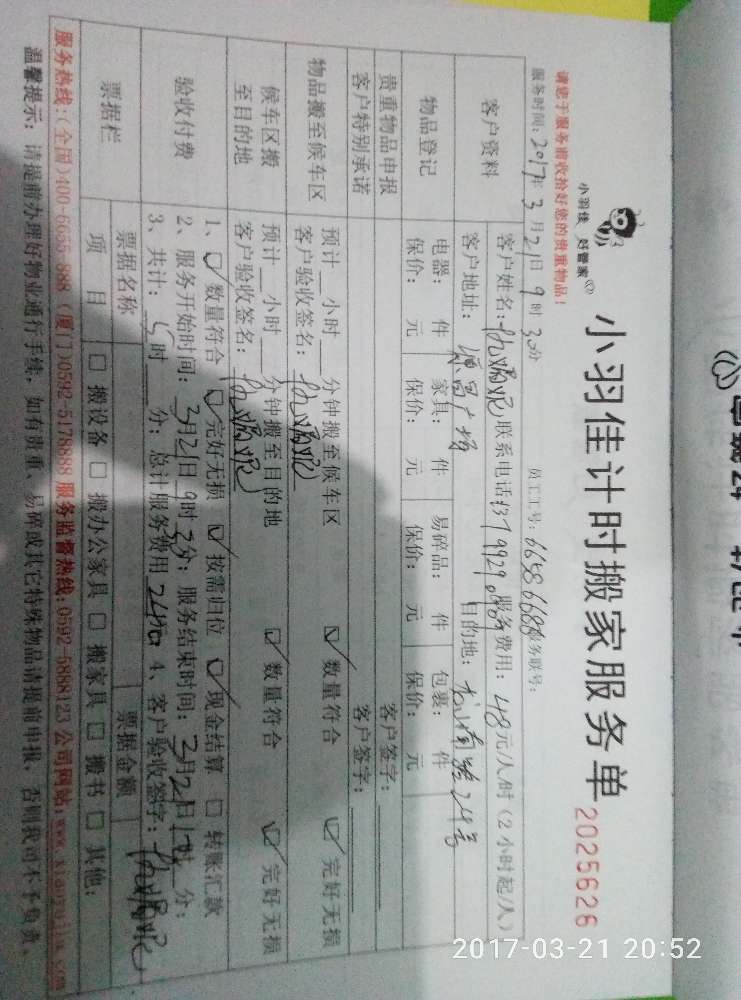 小羽佳 好管家
小羽佳计时搬家服务单
2025626
请您于服务前收拾好您的贵重物品！
服务时间：2017年3月21日9时30分 员工工号：6658 6688 服务联号：
客户资料
客户姓名： 联系电话 服务费用：48元/人/时（2小时起/人）
客户地址： 广场 目的地： 南路24号
物品登记
电器： 件 家具： 件 易碎品： 件 包裹： 件
保价： 元 保价： 元 保价： 元 保价： 元
贵重物品申报
客户签字：
客户特别承诺
客户签字：
物品搬至候车区
预计 小时 分钟搬至候车区 ☑ 数量符合 ☑ 完好无损
客户验收签名：
候车区搬至目的地
预计 小时 分钟搬至目的地 ☑ 数量符合 ☑ 完好无损
客户验收签名：
验收付费
1、☑ 数量符合 ☑ 完好无损 ☑ 按需归位 ☑ 现金结算 □ 转账汇款
2、服务开始时间：3月21日9时30分；服务结束时间：3月21日 时 分；
3、共计：5时 分；总计服务费用 240 4、客户验收签字：
票据栏
票据名称 票据金额
项目 □ 搬设备 □ 搬办公家具 □ 搬家具 □ 搬书 □ 其他：
服务热线：(全国)400-6655-888 (厦门)0592-5178888 服务监督热线：0592-5888123 公司网站：www.xiaoyujia.com
温馨提示：请提前办理好物业通行手续，如有贵重、易碎或其它特殊物品请提前申报，否则我司不予负责。
2017-03-21 20:52